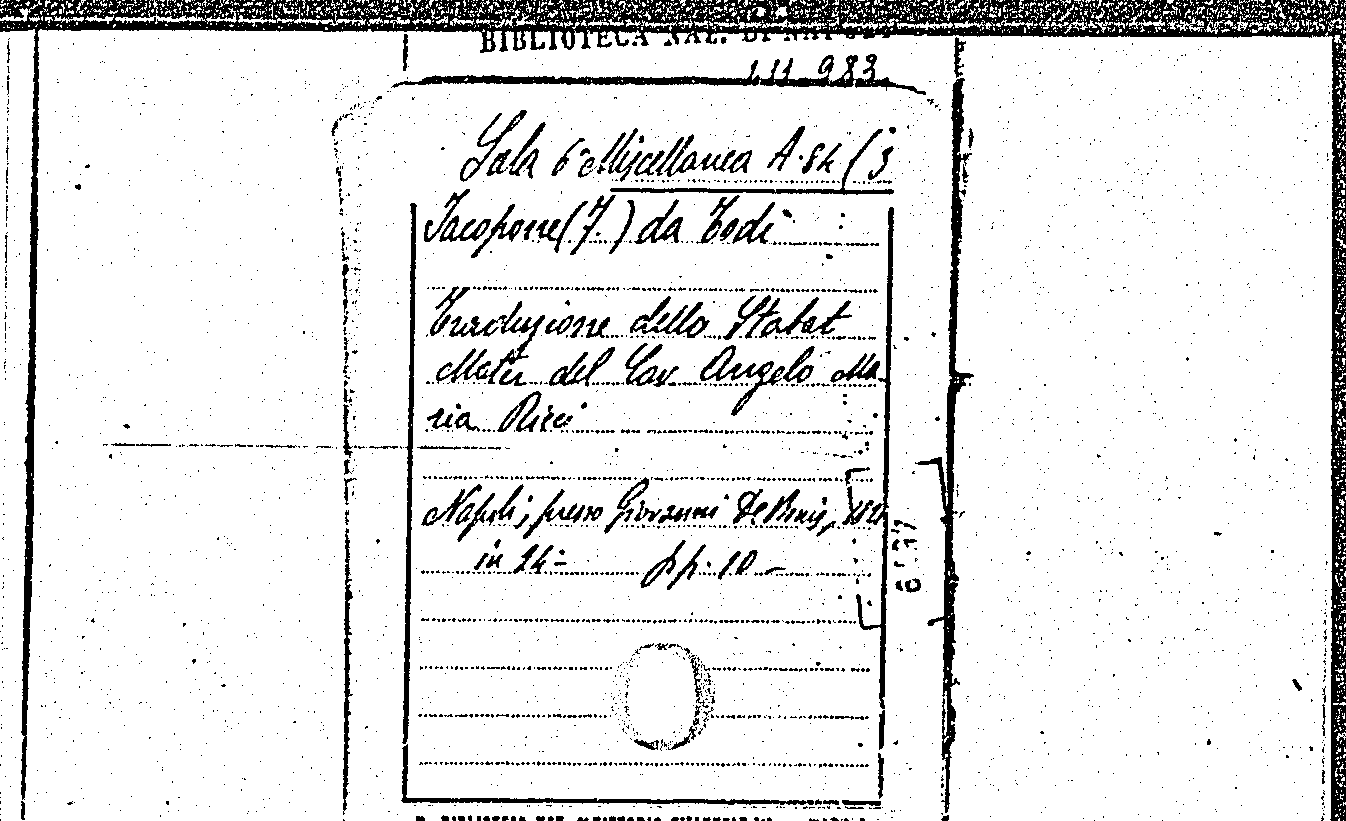 BIBLIOTECA NAZ. DI NAPOLI
111 983
Sala 6ª Miscellanea A. 84 (3
Jacopone (F.) da Todi
Traduzione dello Stabat
Mater del Cav Angelo Ma
ria Ricci
Napoli; presso Giovanni
in 24= pp. 10 –